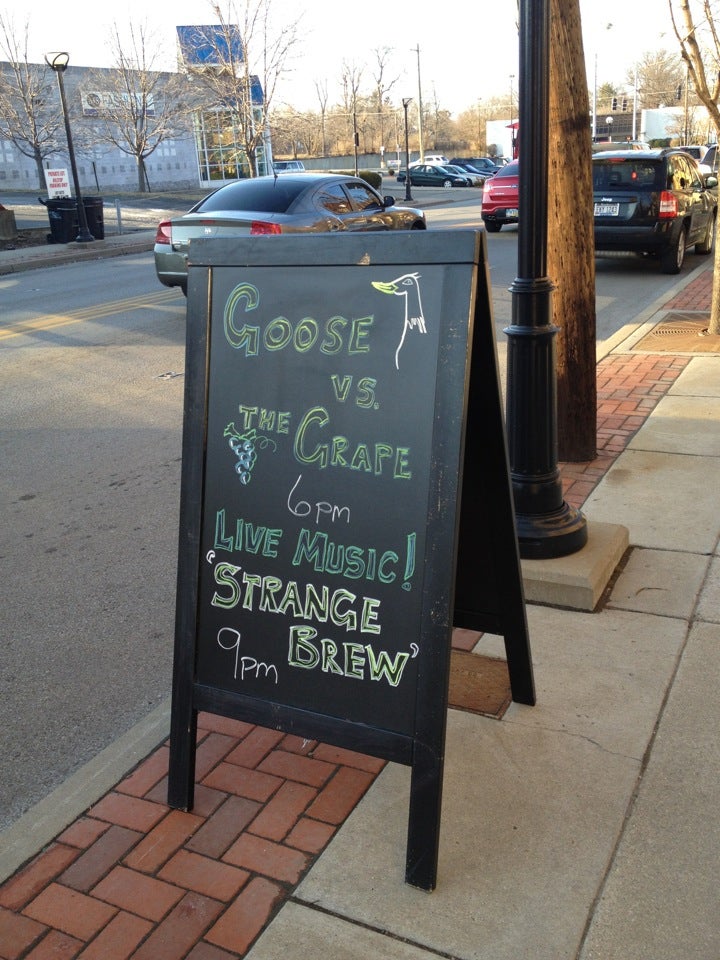 GOOSE
VS.
THE GRAPE
6pm
LIVE MUSIC!
'STRANGE
BREW'
9pm
Jeep